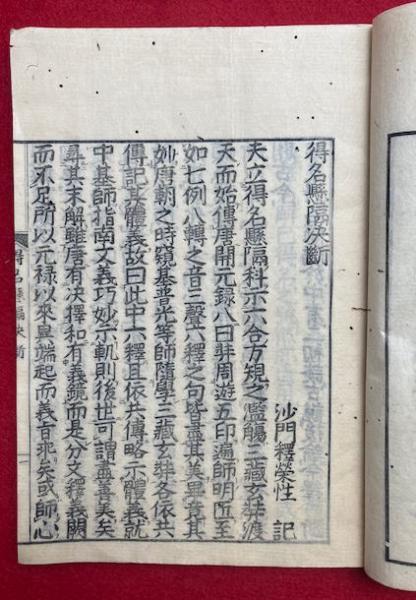 得名懸隔決断
沙門釋榮性 記
夫立得名懸隔科示六合方規之濫觴三藏玄奘渡
天而始傳唐開元録八曰奘周遊五印遍師明匠至
如七例八轉之音三聲六釋之句皆盡其美畢其
妙唐朝之時窺基普光等師隨學三藏玄奘各依共
傳記其體義故曰此中六釋且依共傳略示體義就
中基師指南文義巧妙示軌則後世可謂盡善美矣
尋其末解雖唐有決擇和有義鏡而是分文釋義闕
而不足所以元禄以來異端起而義百非矣或師心
得名懸隔決断 一